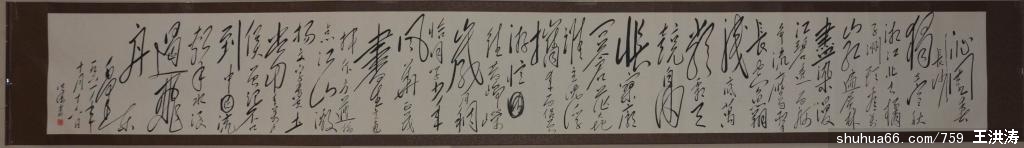 沁园春
长沙
独立寒秋
湘江北去橘
子洲头看万
山红遍层林
尽染漫
江碧透百舸
争流鹰击
长空鱼翔
浅底万
类霜天
竞自由
怅寥廓
问苍茫大地
谁主沉浮
携来百侣曾
游忆
往昔峥嵘
岁月稠
恰同学少年
风华正茂
书生意气
挥斥方遒指
点江山激
扬文字粪土
当年万户
侯曾记否
到中流
击水浪
遏飞
舟
毛泽东
shuhua66.com/759 王洪涛